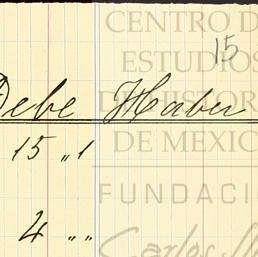 CENTRO D
15
ESTUDIOS
Debe Haber
DE HISTOR
15 „ 1
DE MEXIC
FUNDACI
4 „ „
Carlos Sl